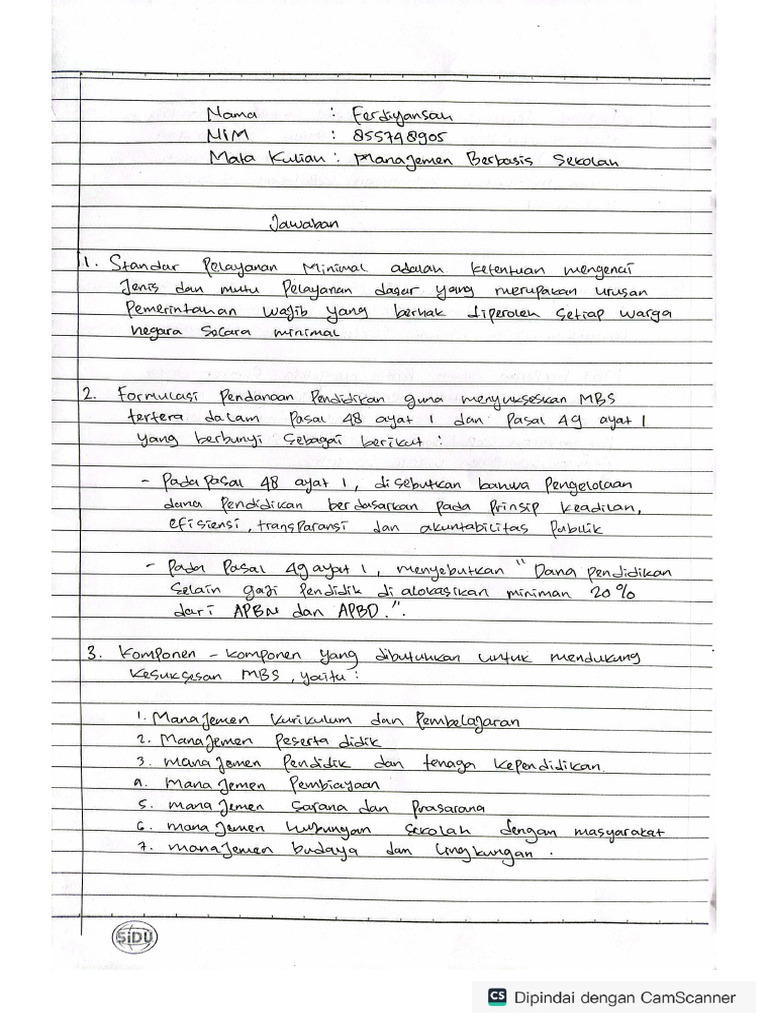 Nama : Ferdiyansah
NIM : 855748905
Mata Kuliah : Manajemen Berbasis Sekolah
Jawaban
1. Standar Pelayanan Minimal adalah ketentuan mengenai
Jenis dan mutu Pelayanan dasar yang merupakan urusan
Pemerintahan wajib yang berhak diperoleh setiap warga
negara secara minimal
2. Formulasi Pendanaan Pendidikan guna menyukseskan MBS
tertera dalam Pasal 48 ayat 1 dan Pasal 49 ayat 1
yang berbunyi sebagai berikut :
- Pada pasal 48 ayat 1, disebutkan bahwa Pengelolaan
dana Pendidikan berdasarkan pada Prinsip keadilan,
efisiensi, transparansi dan akuntabilitas Publik
- Pada Pasal 49 ayat 1, menyebutkan " Dana pendidikan
Selain gaji Pendidik di alokasikan miniman 20%
dari APBN dan APBD.".
3. Komponen - komponen yang dibutuhkan untuk mendukung
kesuksesan MBS, yaitu :
1. Manajemen kurikulum dan Pembelajaran
2. Manajemen Peserta didik
3. manajemen Pendidik dan tenaga kependidikan.
4. Manajemen Pembiayaan
5. manajemen Sarana dan Prasarana
6. manajemen hubungan sekolah dengan masyarakat
7. manajemen budaya dan lingkungan.
SiDU
CS Dipindai dengan CamScanner